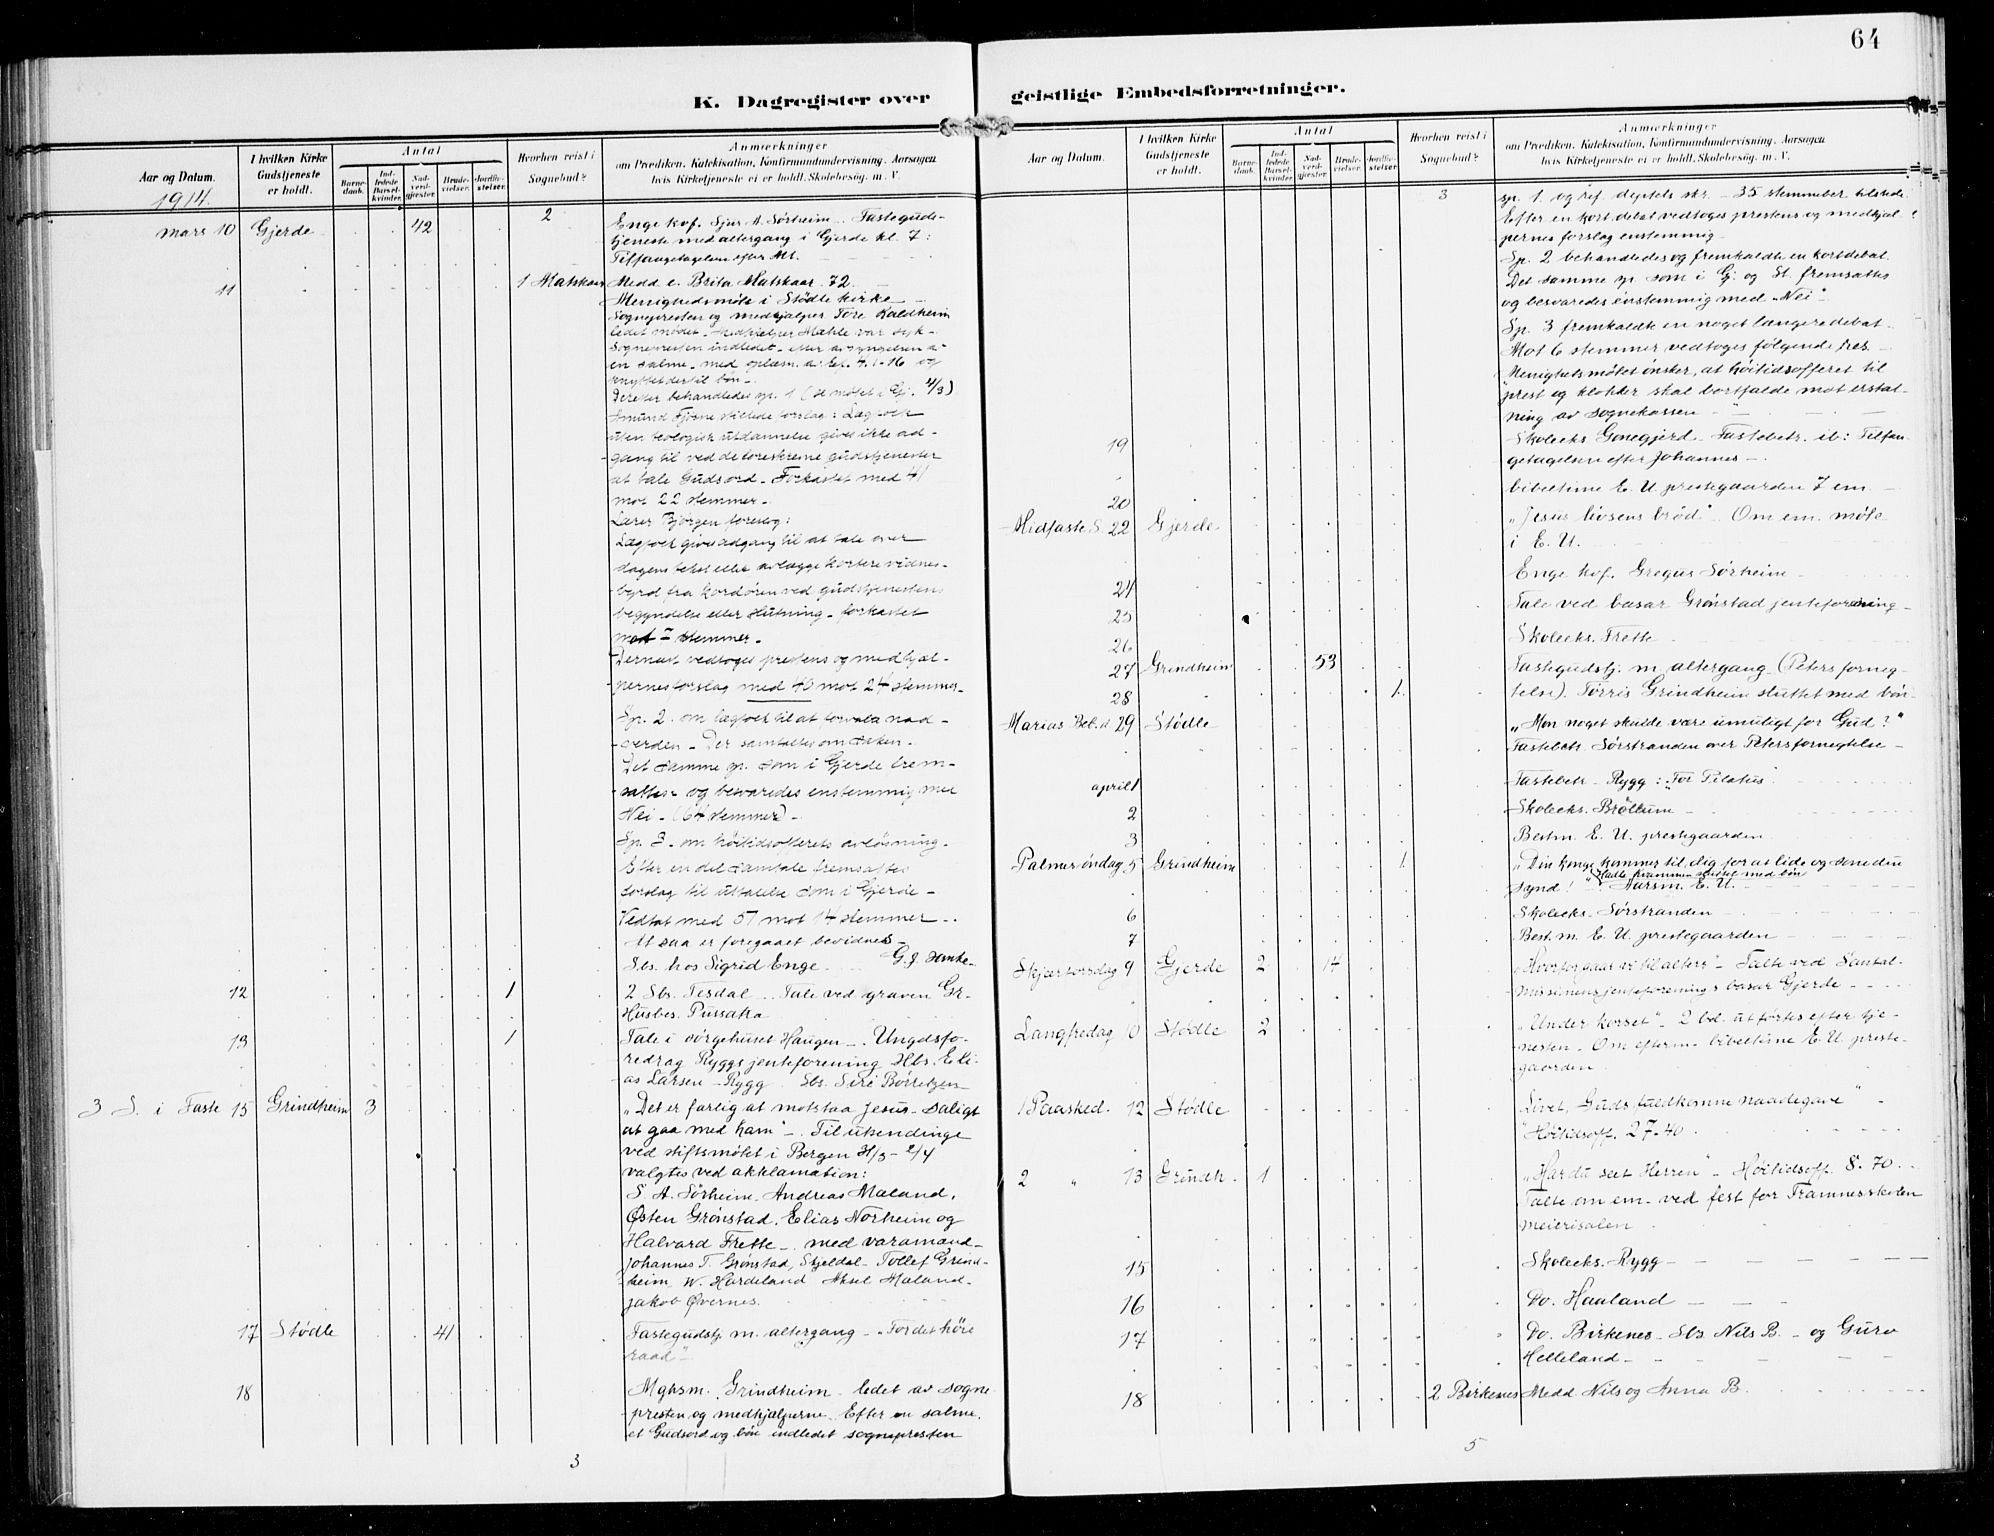 64
K. Dagregister over geistlige Embedsforretninger.
Aar og Datum.
I hvilken Kirke Gudstjeneste er holdt.
Antal
Barnedaab.
Indledede Barselkvinder.
Nadverdgjæster.
Brudevielser.
Jordfæstelser.
Hvorhen reist i Sognebud?
Anmærkninger
om Prædiken, Katekisation, Konfirmandundervisning, Aarsagen
hvis Kirketjeneste ei er holdt, Skolebesøg, m. V.
1914.
2
mars 10 Gjerde 42 Enge kof. Sjur A. Sørheim. Fasteguds-
tjeneste med altergang i Gjerde kl. 7:
Tilfangetagelsen efter Mt.
11 1 Matskaar Medd e. Brita Matskaar 72.
Menighedsmøte i Stødle kirke
Sognepresten og medhjælper Tore Kaldheim
ledet mødet. Medhjelper Mæhle var syk.
Sognepresten indledet efter avsyngelsen a-
en salme med oplæsn. a. Ef. 4. 1-16 og
knyttet dertil bøn.
Derefter behandledes sp. 1 (se møtet i Gj. 4/3)
Amund Fjøsne stillede forslag: Lægfolk
uten teologisk utdannelse gives ikke ad-
gang til ved de foreskrevne gudstjenester
at tale Guds ord. Forkastet med 41
mot 22 stemmer.
Lærer Bjørgen foreslog:
Lægfolk gives adgang til at tale over
dagens tekst eller avlægge kortere vidnes-
byrd fra kordøren ved gudstjenestens
begyndelse eller slutning. forkastet
mot stemmer.
Dernæst vedtoges prestens og medhjæl-
pernes forslag med 40 mot 24 stemmer.
Sp. 2. om lægfolk til at forvalte nad-
verden. Der samtaltes om saken.
Det samme sp. som i Gjerde frem-
sattes og besvaredes enstemmig med
Nei. (64 stemmer)
Sp. 3. om høitidsofferets avløsning.
Efter en del samtale fremsattes
forslag til uttalelse som i Gjerde
Vedtat med 57 mot 14 stemmer.
At saa er foregaaet bevidnes
Sbs. hos Sigrid Enge.
12 1 2 Sbs. Tesdal. Tale ved graven Gr.
Husbes. Pussaka
13 1 Tale i sørgehuset Haugen. Ungdsfo-
redrag Ryggs jenteforening Hbs. Eli-
as Larsen Rygg. Sbs. Siri Børretzen
3 S. i Faste 15 Grindheim 3 "Det er farlig at motstaa Jesus saligt
at gaa med ham". Til utsendinge
ved stiftsmøtet i Bergen 31/3 - 2/4
valgtes ved akklamation:
S. A. Sørheim, Andreas Mæland,
Østen Grønstad, Elias Norheim og
Halvard Frette med varamænd
Johannes T. Grønstad, Skjeldal, Tollef Grind-
heim, W. Hardeland Aksel Mæland
Jakob Øvernes.
17 Stødle 41 Fastegudstj. m. altergang "For det høie
raad"
18 Mghsm. Grindheim ledet av sogne
presten og medhjælperne. Efter en salme,
et Guds ord og bøn indledet sognepresten
3
Aar og Datum.
I hvilken Kirke Gudstjeneste er holdt.
Antal
Barnedaab.
Indledede Barselkvinder.
Nadverdgjæster.
Brudevielser.
Jordfæstelser.
Hvorhen reist i Sognebud?
Anmærkninger
om Prædiken, Katekisation, Konfirmandundervisning, Aarsagen
hvis Kirketjeneste ei er holdt, Skolebesøg, m. V.
3 sp. 1. og ref. deptets skr. 35 stemmber. tilstede
Efter en kort debat vedtoges prestens og medhjæl-
pernes forslag enstemmig
Sp. 2 behandledes og fremkaldte en kort debat.
Det samme sp. som i G. og St. fremsattes
og besvaredes enstemmig med "Nei"
Sp. 3 fremkaldte en noget længere debat
Mot 6 stemmer vedtoges følgende res.
Menighetsmøtet ønsker, at høitidsofferet til
prest og klokker skal bortfalde mot erstat-
ning av sognekassen
19 Skoleeks Gonegjerd. Fastebetr. ib: Tilfan-
getagelsen efter Johannes
20 bibeltime E. U. prestegaarden 7 em
Midfaste S. 22 Gjerde "Jesus livsens brød". Om em. møte
i E. U.
Enge kof. Gregus Sørheim
24 Tale ved basar Grønstad jenteforening
25 Skoleeks. Frette
26
27 Grindheim 53 Fastegudstj. m. altergang (Peters forneg-
28 1 telse). Tørris Grindheim sluttet med bøn
Marias Beb. d. 29 Stødle "Mon noget skulde være umuligt for Gud?"
Fastebetr. Sørstranden over Peters fornegtelse
april 1 Fastebetr. Rygg: "For Pilatus"
2 Skoleeks. Brøttum
3 Bestm. E. U. prestegaarden
Palmesøndag 5 Grindheim 1 "Din konge kommer til dig for at lide og sone din
synd!" Aarsm. E. U.
6 Skoleeks. Sørstranden
7 Best. m. E. U. prestegaarden
Skjærtorsdag 9 Gjerde 2 14 "Hvorfor gaar vi til alters" Talte ved Santal-
missionens jenteforenings basar Gjerde
Langfredag 10 Stødle 2 "Under korset" 2 bd. utførtes efter tje-
nesten. Om efterm. bibeltime E. U. preste-
gaarden
1 Paasked. 12 Stødle Livet, Guds fuldkomne naadegave"
Høitidsoff. 27.40
2 " 13 Grindh. 1 "Har du seet Herren" Høitidsoff. 8.70.
Talte om em. ved fest for Framnesskolen
meierisalen
15 Skoleeks. Rygg
16 Do. Haaland
17 Do. Birkenes. Sbs. Nils B. og Guro
Helleland
18 2 Birkenes Medd Nils og Anna B.
5